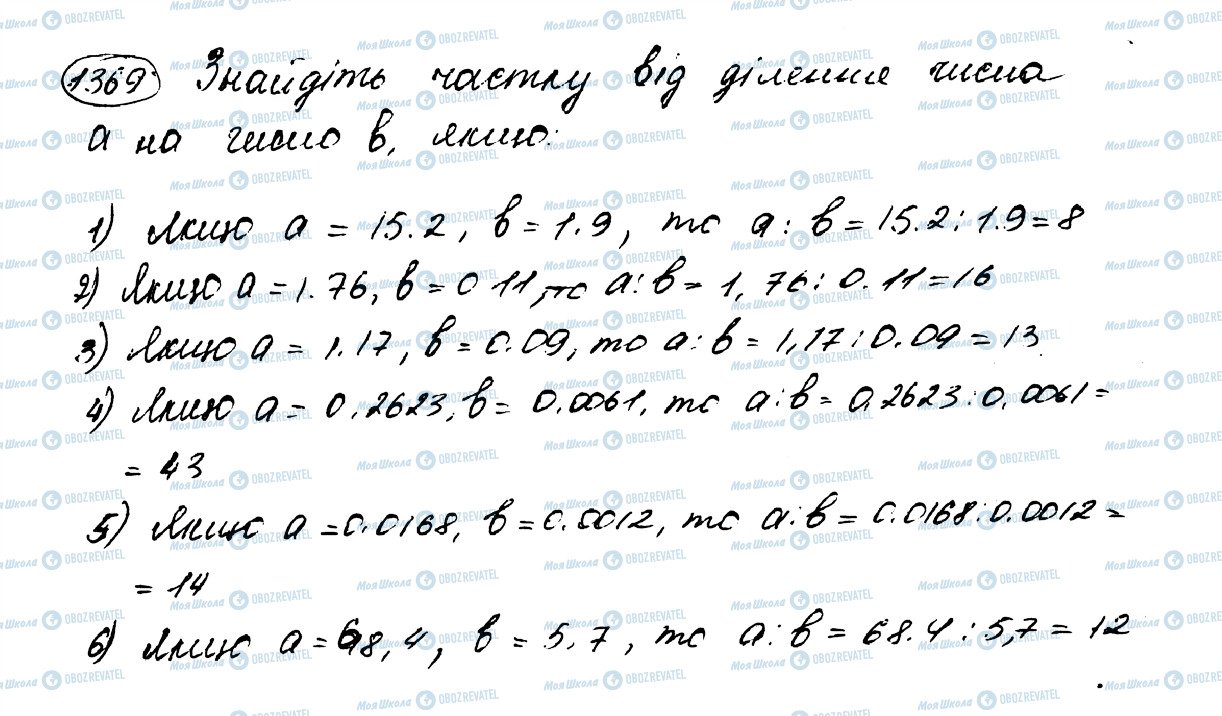 1369 Знайдіть частку від ділення числа
а на число в, якщо:
1) Якщо а = 15.2, в = 1.9, то а : в = 15.2 : 1.9 = 8
2) Якщо а = 1.76, в = 0.11, то а : в = 1,76 : 0.11 = 16
3) Якщо а = 1.17, в = 0.09, то а : в = 1,17 : 0.09 = 13
4) Якщо а = 0.2623, в = 0.0061, то а : в = 0,2623 : 0,0061 =
= 43
5) Якщо а = 0.0168, в = 0.0012, то а : в = 0.0168 : 0.0012 =
= 14
6) Якщо а = 68,4, в = 5,7, то а : в = 68.4 : 5,7 = 12
МояШкола OBOZREVATEL